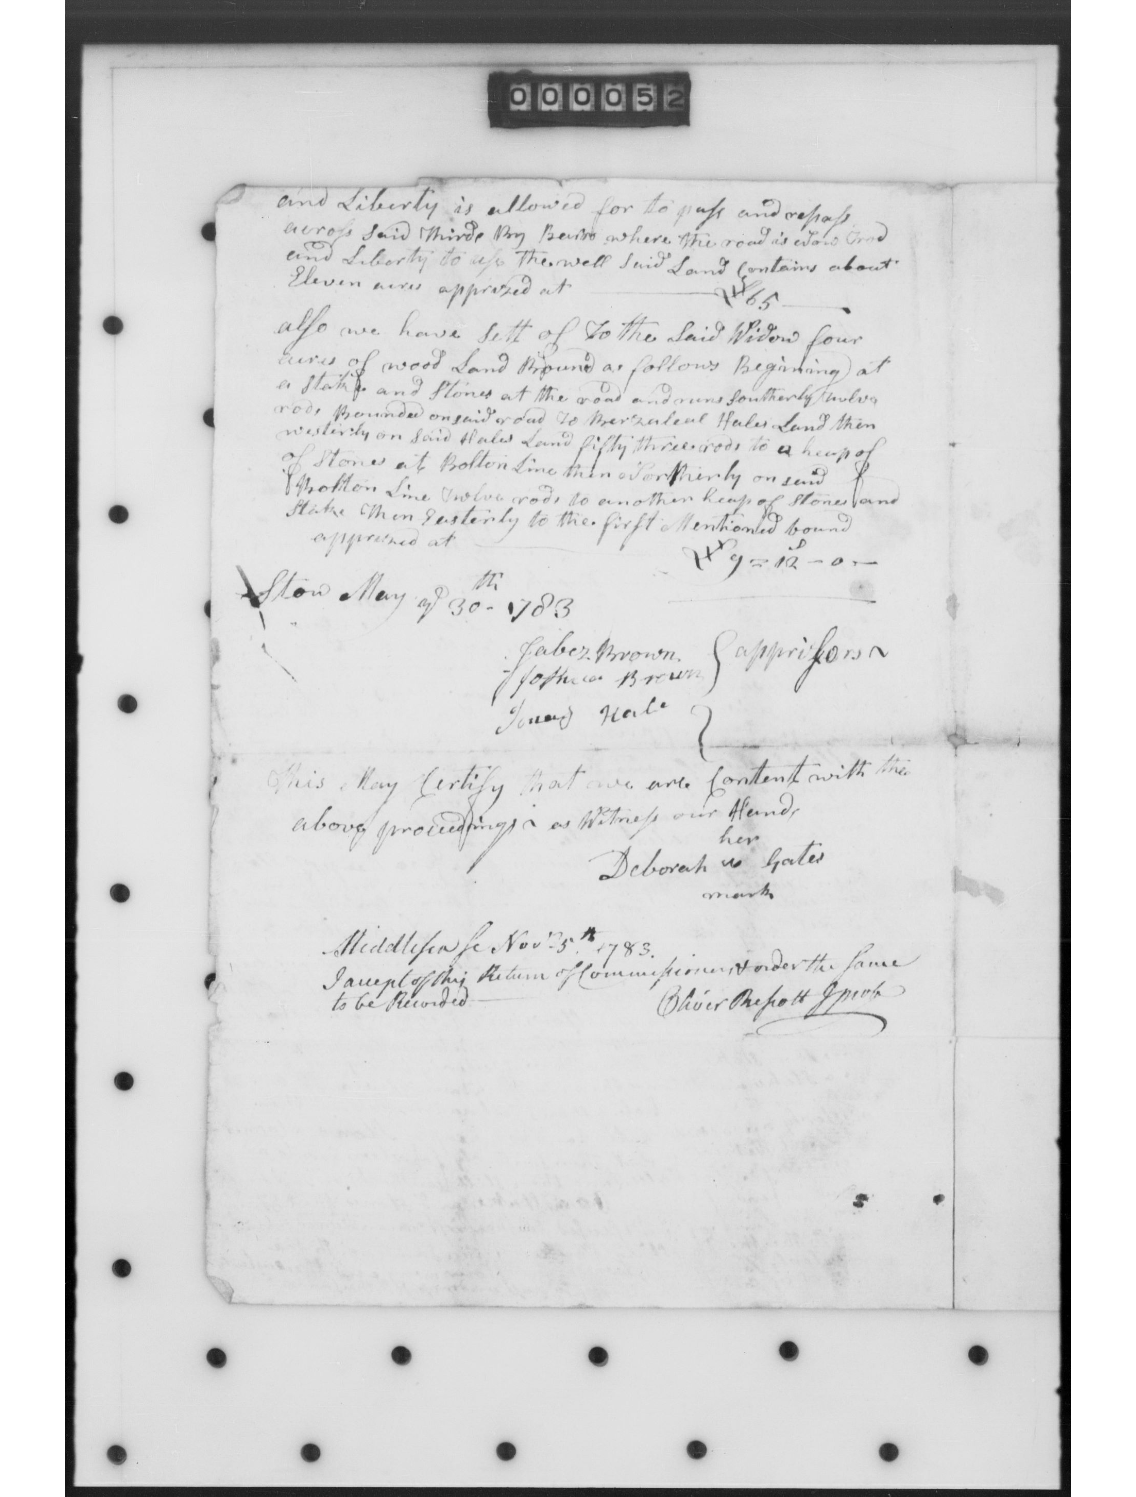 000052
and Liberty is allowed for to pass and repass
across said thirds By Bears where the road is Now Trod
and Liberty to use the well Said Land Contains about
Eleven acres apprized at £65
also we have Sett of To the Said Widow four
acres of wood Land Bound as follows Beginning at
a Stake and Stones at the road and runs Southerly twelve
rods Bounded on said road To Berzaleal Hales Land then
westerly on Said Hales Land fifty three rods to a heap of
of Stones at Bolton Line then Northerly on said
Bolton Line Twelve rods to another heap of Stones and
Stake then Easterly to the first Mentioned bound
apprized at £9=12-0-
Stow May ye 30th 1783
Jabez Brown
Joshua Brown } apprisors
Hale
This May Certify that we are Content with the
above proceedings as Witness our Hands
her
Deborah Gates
mark
Middlesex Sc Nov 1783.
I accept of this Return of Commissioners & order the same
to be Recorded
Oliver Prescott J prob